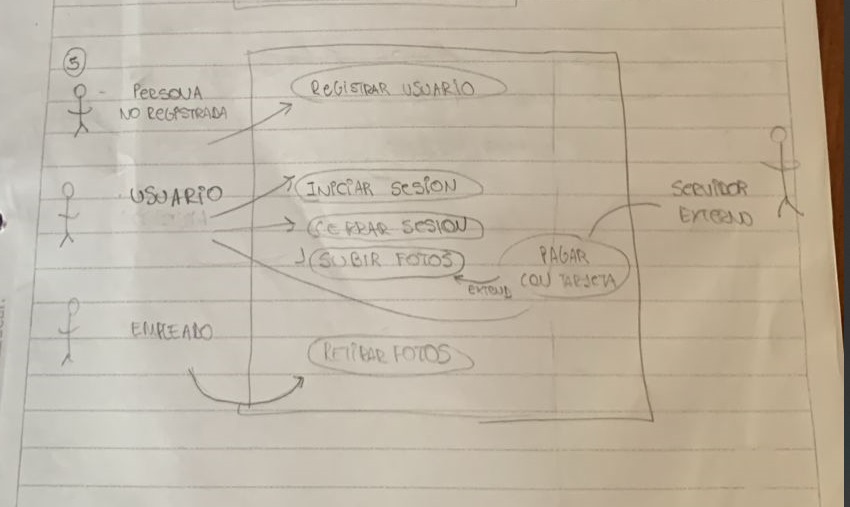 5
PERSONA
NO REGISTRADA
REGISTRAR USUARIO
USUARIO
INICIAR SESION
CERRAR SESION
SUBIR FOTOS
PAGAR
CON TARJETA
EXTEND
SERVIDOR
EXTERNO
EMPLEADO
RETIRAR FOTOS